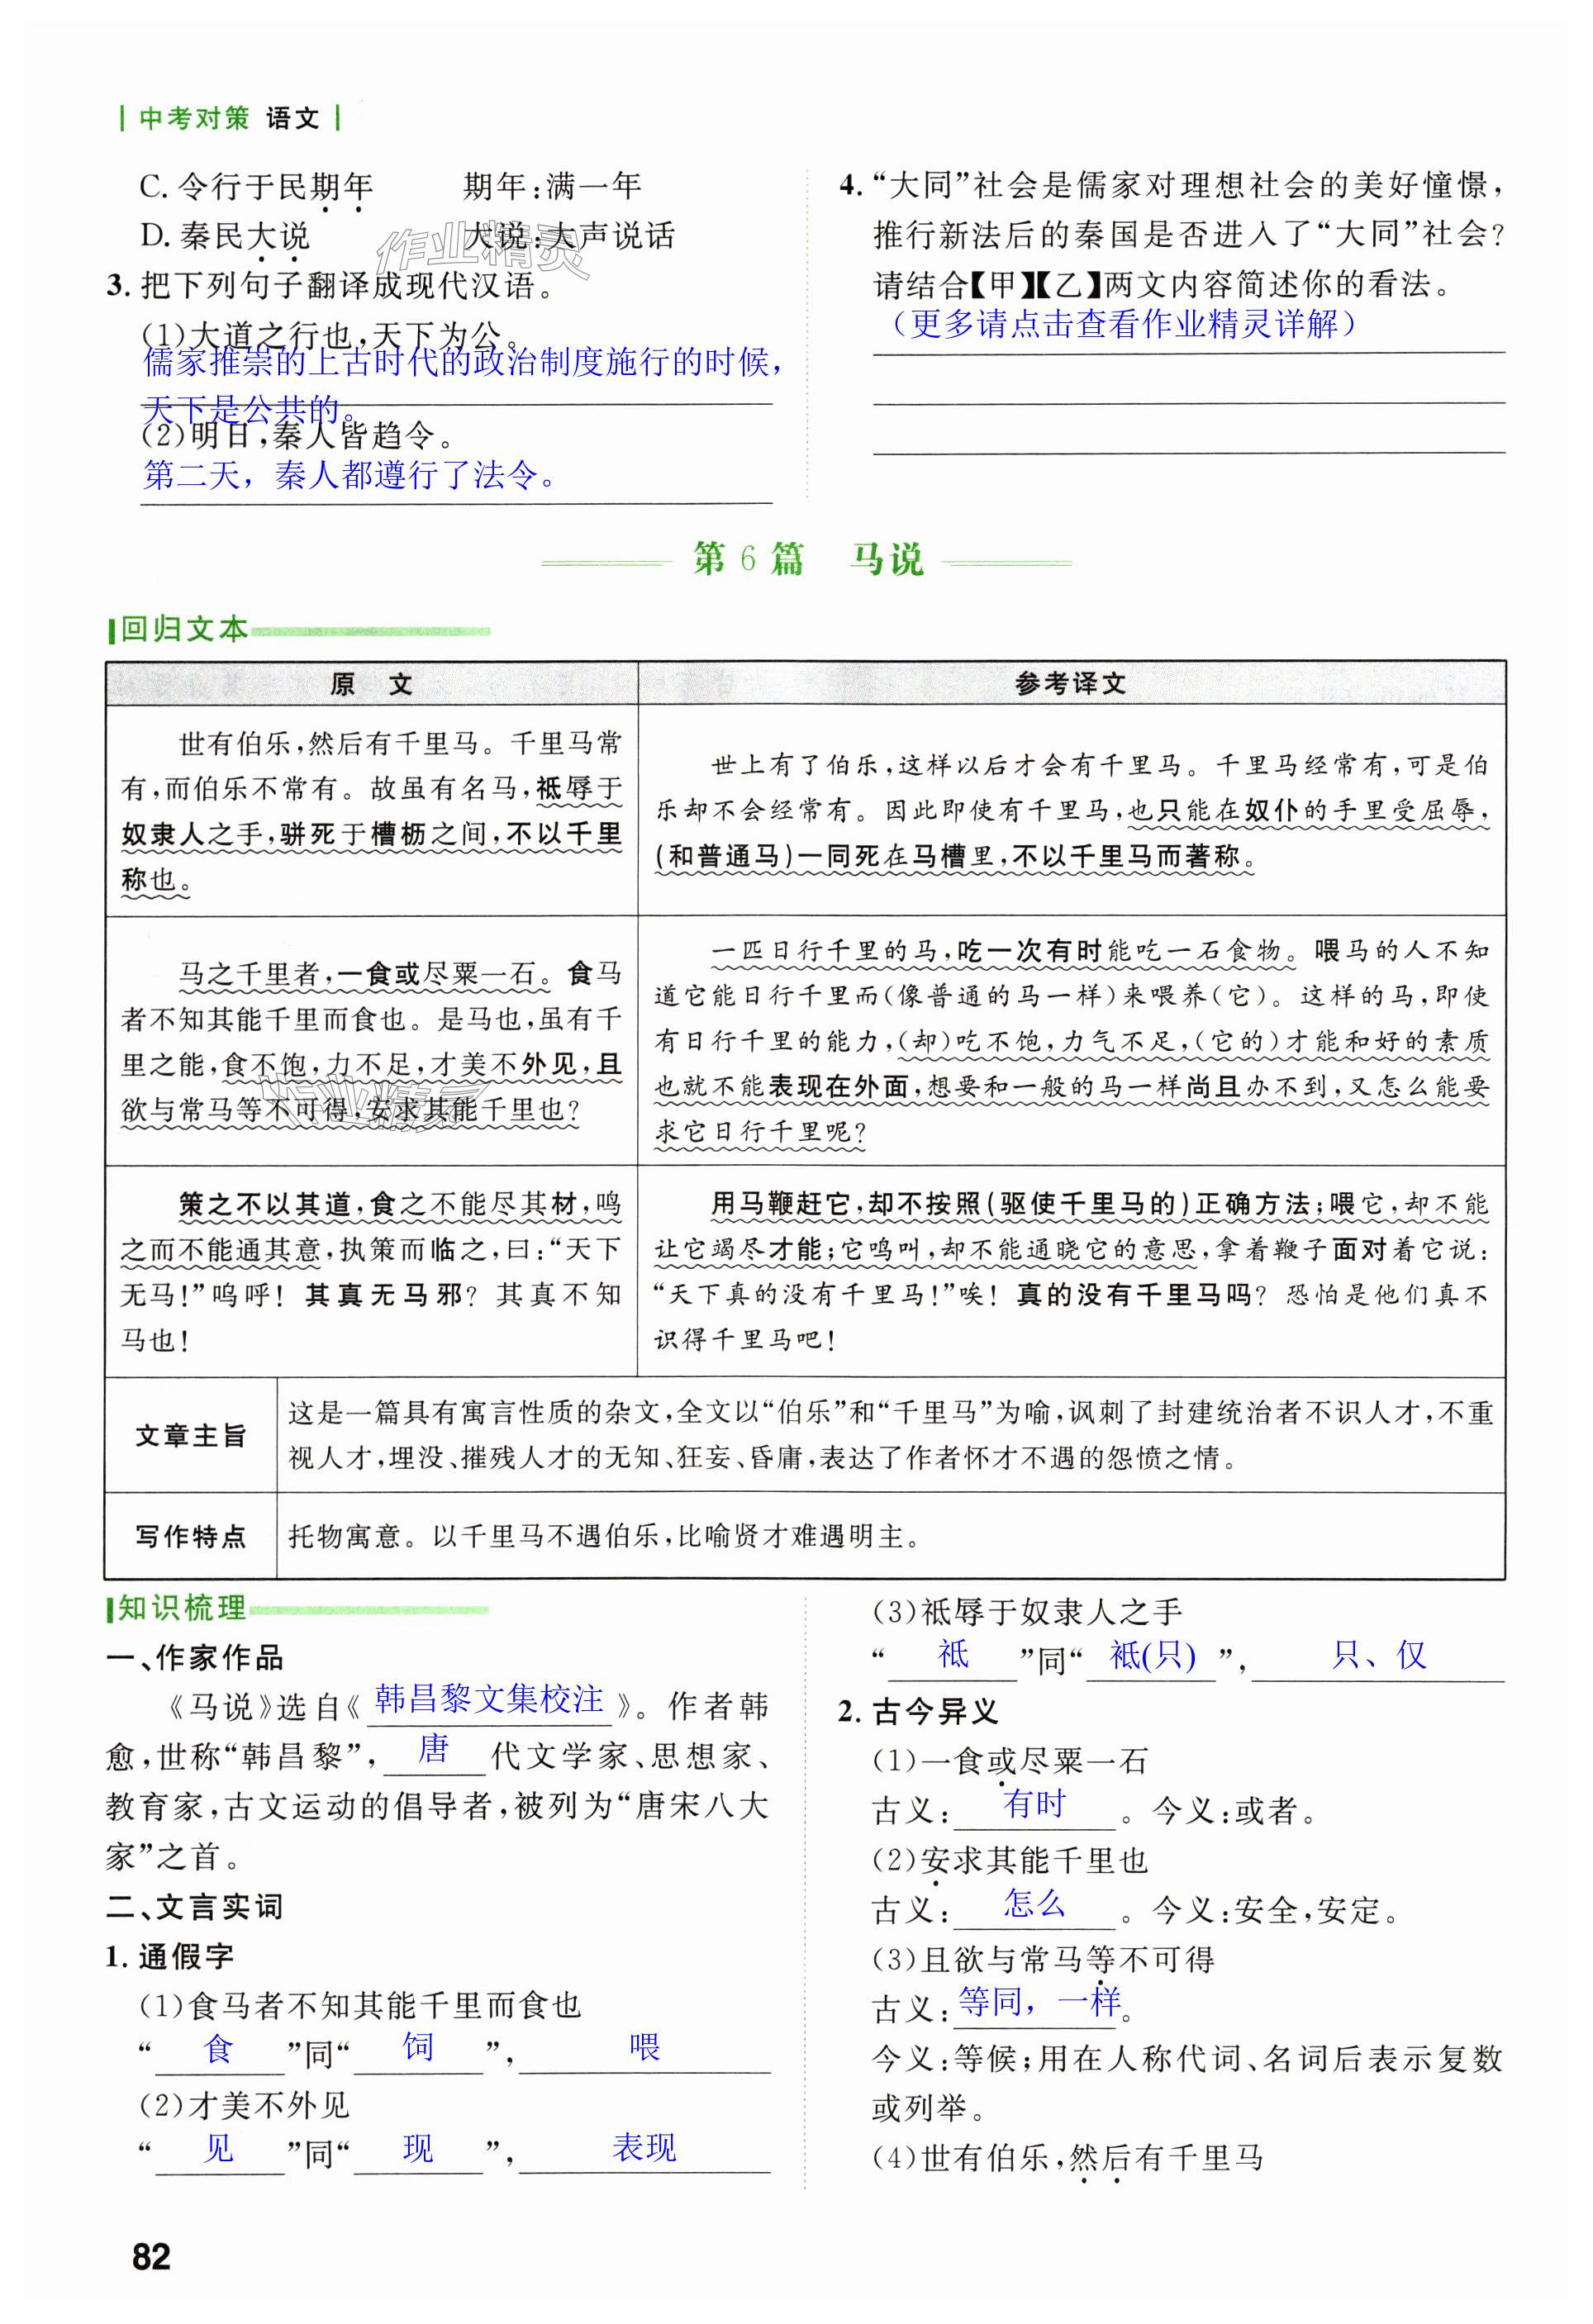 中考对策 语文
C. 令行于民期年 期年:满一年
D. 秦民大说 大说:大声说话
3. 把下列句子翻译成现代汉语。
(1)大道之行也,天下为公。
儒家推崇的上古时代的政治制度施行的时候,
天下是公共的。
(2)明日,秦人皆趋令。
第二天，秦人都遵行了法令。
4. “大同”社会是儒家对理想社会的美好憧憬,
推行新法后的秦国是否进入了“大同”社会?
请结合【甲】【乙】两文内容简述你的看法。
（更多请点击查看作业精灵详解）
作业精灵
第 6 篇 马说
回归文本
原 文 参考译文
世有伯乐,然后有千里马。千里马常
有,而伯乐不常有。故虽有名马,祗辱于
奴隶人之手,骈死于槽枥之间,不以千里
称也。
世上有了伯乐,这样以后才会有千里马。千里马经常有,可是伯
乐却不会经常有。因此即使有千里马,也只能在奴仆的手里受屈辱,
(和普通马)一同死在马槽里,不以千里马而著称。
马之千里者,一食或尽粟一石。食马
者不知其能千里而食也。是马也,虽有千
里之能,食不饱,力不足,才美不外见,且
欲与常马等不可得,安求其能千里也?
作业精灵
一匹日行千里的马,吃一次有时能吃一石食物。喂马的人不知
道它能日行千里而(像普通的马一样)来喂养(它)。这样的马,即使
有日行千里的能力,(却)吃不饱,力气不足,(它的)才能和好的素质
也就不能表现在外面,想要和一般的马一样尚且办不到,又怎么能要
求它日行千里呢?
策之不以其道,食之不能尽其材,鸣
之而不能通其意,执策而临之,曰:“天下
无马!”呜呼! 其真无马邪? 其真不知
马也!
用马鞭赶它,却不按照(驱使千里马的)正确方法;喂它,却不能
让它竭尽才能;它鸣叫,却不能通晓它的意思,拿着鞭子面对着它说:
“天下真的没有千里马!”唉! 真的没有千里马吗? 恐怕是他们真不
识得千里马吧!
文章主旨
这是一篇具有寓言性质的杂文,全文以“伯乐”和“千里马”为喻,讽刺了封建统治者不识人才,不重
视人才,埋没、摧残人才的无知、狂妄、昏庸,表达了作者怀才不遇的怨愤之情。
写作特点
托物寓意。以千里马不遇伯乐,比喻贤才难遇明主。
知识梳理
一、作家作品
《马说》选自《 韩昌黎文集校注 》。作者韩
愈,世称“韩昌黎”, 唐 代文学家、思想家、
教育家,古文运动的倡导者,被列为“唐宋八大
家”之首。
二、文言实词
1. 通假字
(1)食马者不知其能千里而食也
“ 食 ”同“ 饲 ”, 喂
(2)才美不外见
“ 见 ”同“ 现 ”, 表现
(3)祗辱于奴隶人之手
“ 祗 ”同“ 衹(只) ”, 只、仅
2. 古今异义
(1)一食或尽粟一石
古义: 有时 。今义:或者。
(2)安求其能千里也
古义: 怎么 。今义:安全,安定。
(3)且欲与常马等不可得
古义: 等同，一样 。
今义:等候;用在人称代词、名词后表示复数
或列举。
(4)世有伯乐,然后有千里马
82